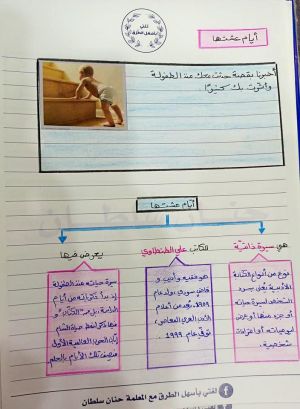 لغتي
بأسهل الطرق
أيام عشتها
أخبرنا بقصة حدثت معك منذ الطفولة
وأثرت بك كثيرًا
أيام عشتها
هي سيرة ذاتية
الكاتب علي الطنطاوي
يعرض فيها
نوع من أنواع الكتابة
الأدبية تعني بسرد
الشخص لسيرة حياته
أو جزء منها أو عرض
ليوميات أو اعترافات
شخصية.
هو فقيه وأديب و
قاض سوري، ولد عام
١٩٠٩، يُعد من أعلام
الأدب العربي المعاصر،
توفي عام ١٩٩٩.
سيرة حياته منذ الطفولة
إذ بدأ ذكرياته من أيام
الدراسة
زمان الحرب العالمية الأولى
تلك الأيام بالحلم
لغتي بأسهل الطرق مع المعلمة حنان سلطان